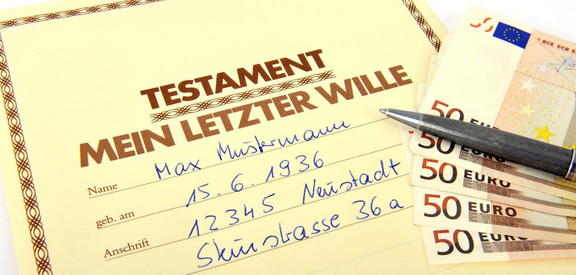 TESTAMENT
MEIN LETZTER WILLE
Name Max Mustermann
geb. am 15.6.1936
Anschrift 12345 Neustadt
36a
50 EURO
50 EURO
50 EURO
50 EURO
50 EURO